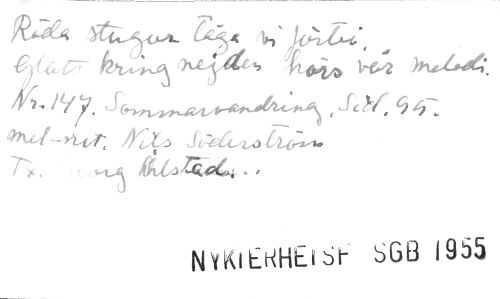 Röda stugor tåga vi förbi,
Glatt kring nejden hörs vår melodi.
Nr. 147. Sommarvandring. Sid. 95.
mel-not. Nils Söderström
Tx. Georg Ahlstad...
NYKTERHETSF SGB 1955